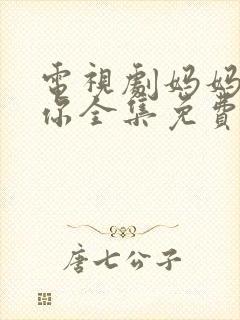 電視劇妈妈
你全集免費
唐七公子